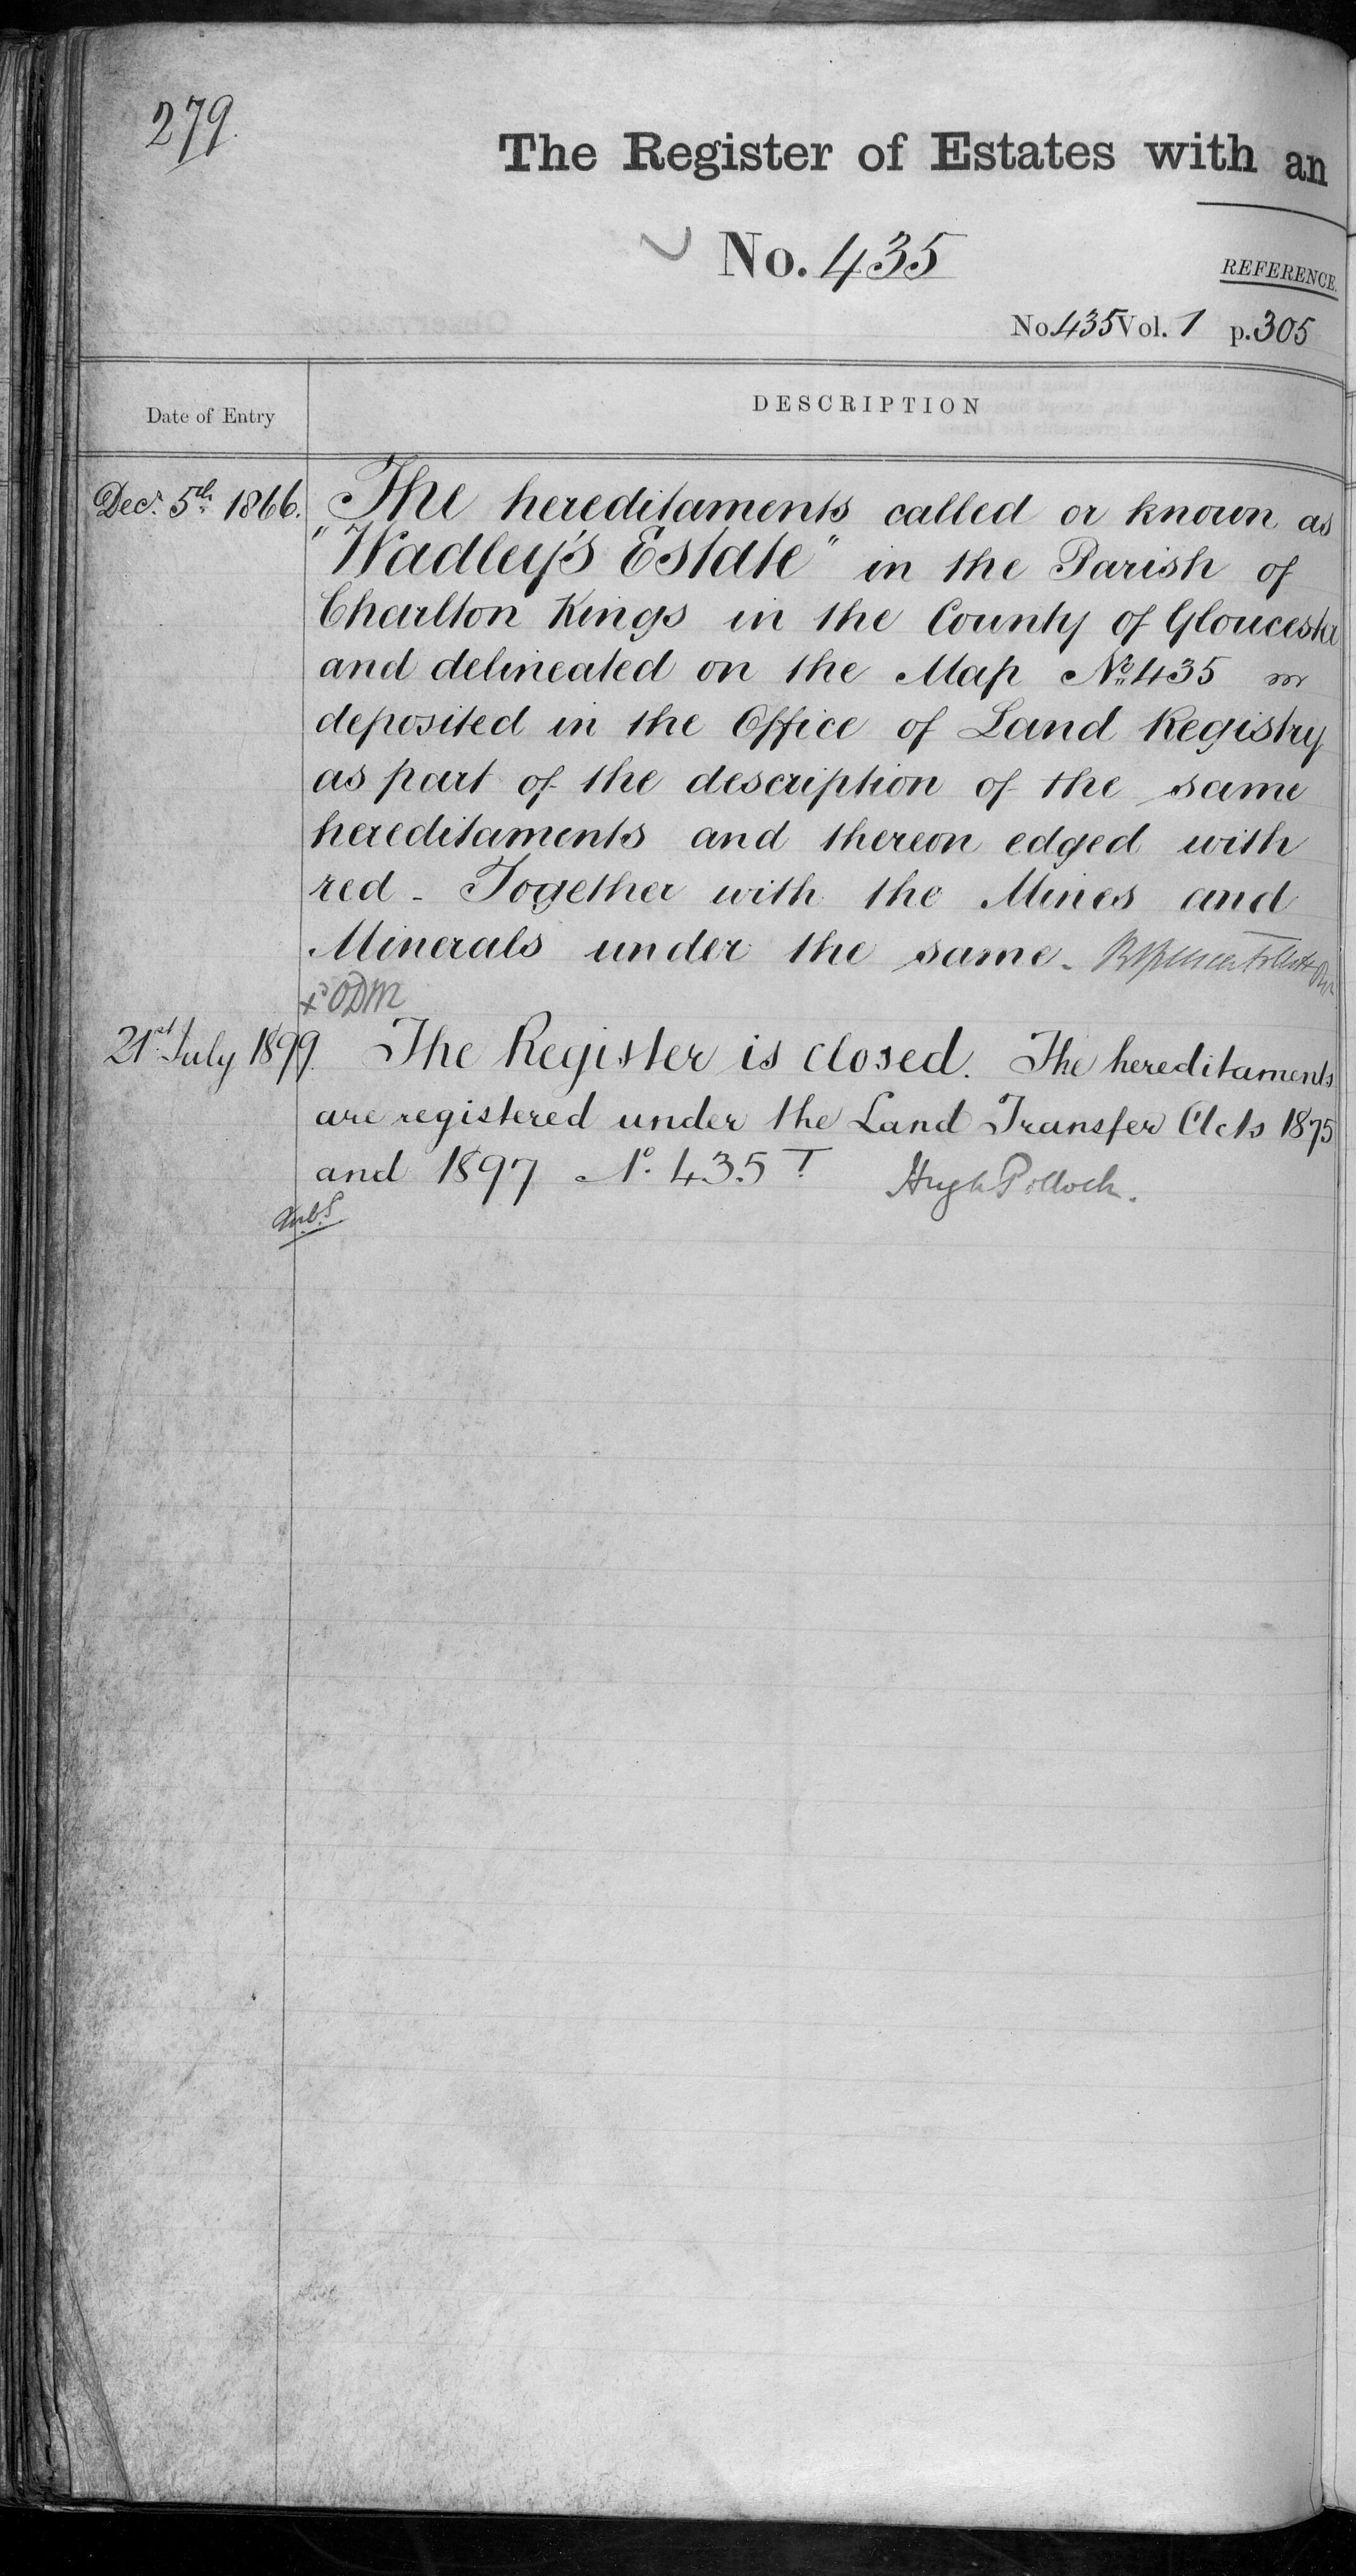 279.
The Register of Estates with an
No. 435
REFERENCE.
No. 435 Vol. 1 p. 305
Date of Entry
DESCRIPTION
Decr. 5th. 1866. The hereditaments called or known as
"Wadley's Estate" in the Parish of
Charlton Kings in the County of Gloucester
and delineated on the Map No. 435
deposited in the Office of Land Registry
as part of the description of the same
hereditaments and thereon edged with
red - Together with the Mines and
Minerals under the same -
21st. July 1899. The Register is closed. The hereditaments
are registered under the Land Transfer Acts 1875
and 1897 No. 435 T Hugh Pollock.